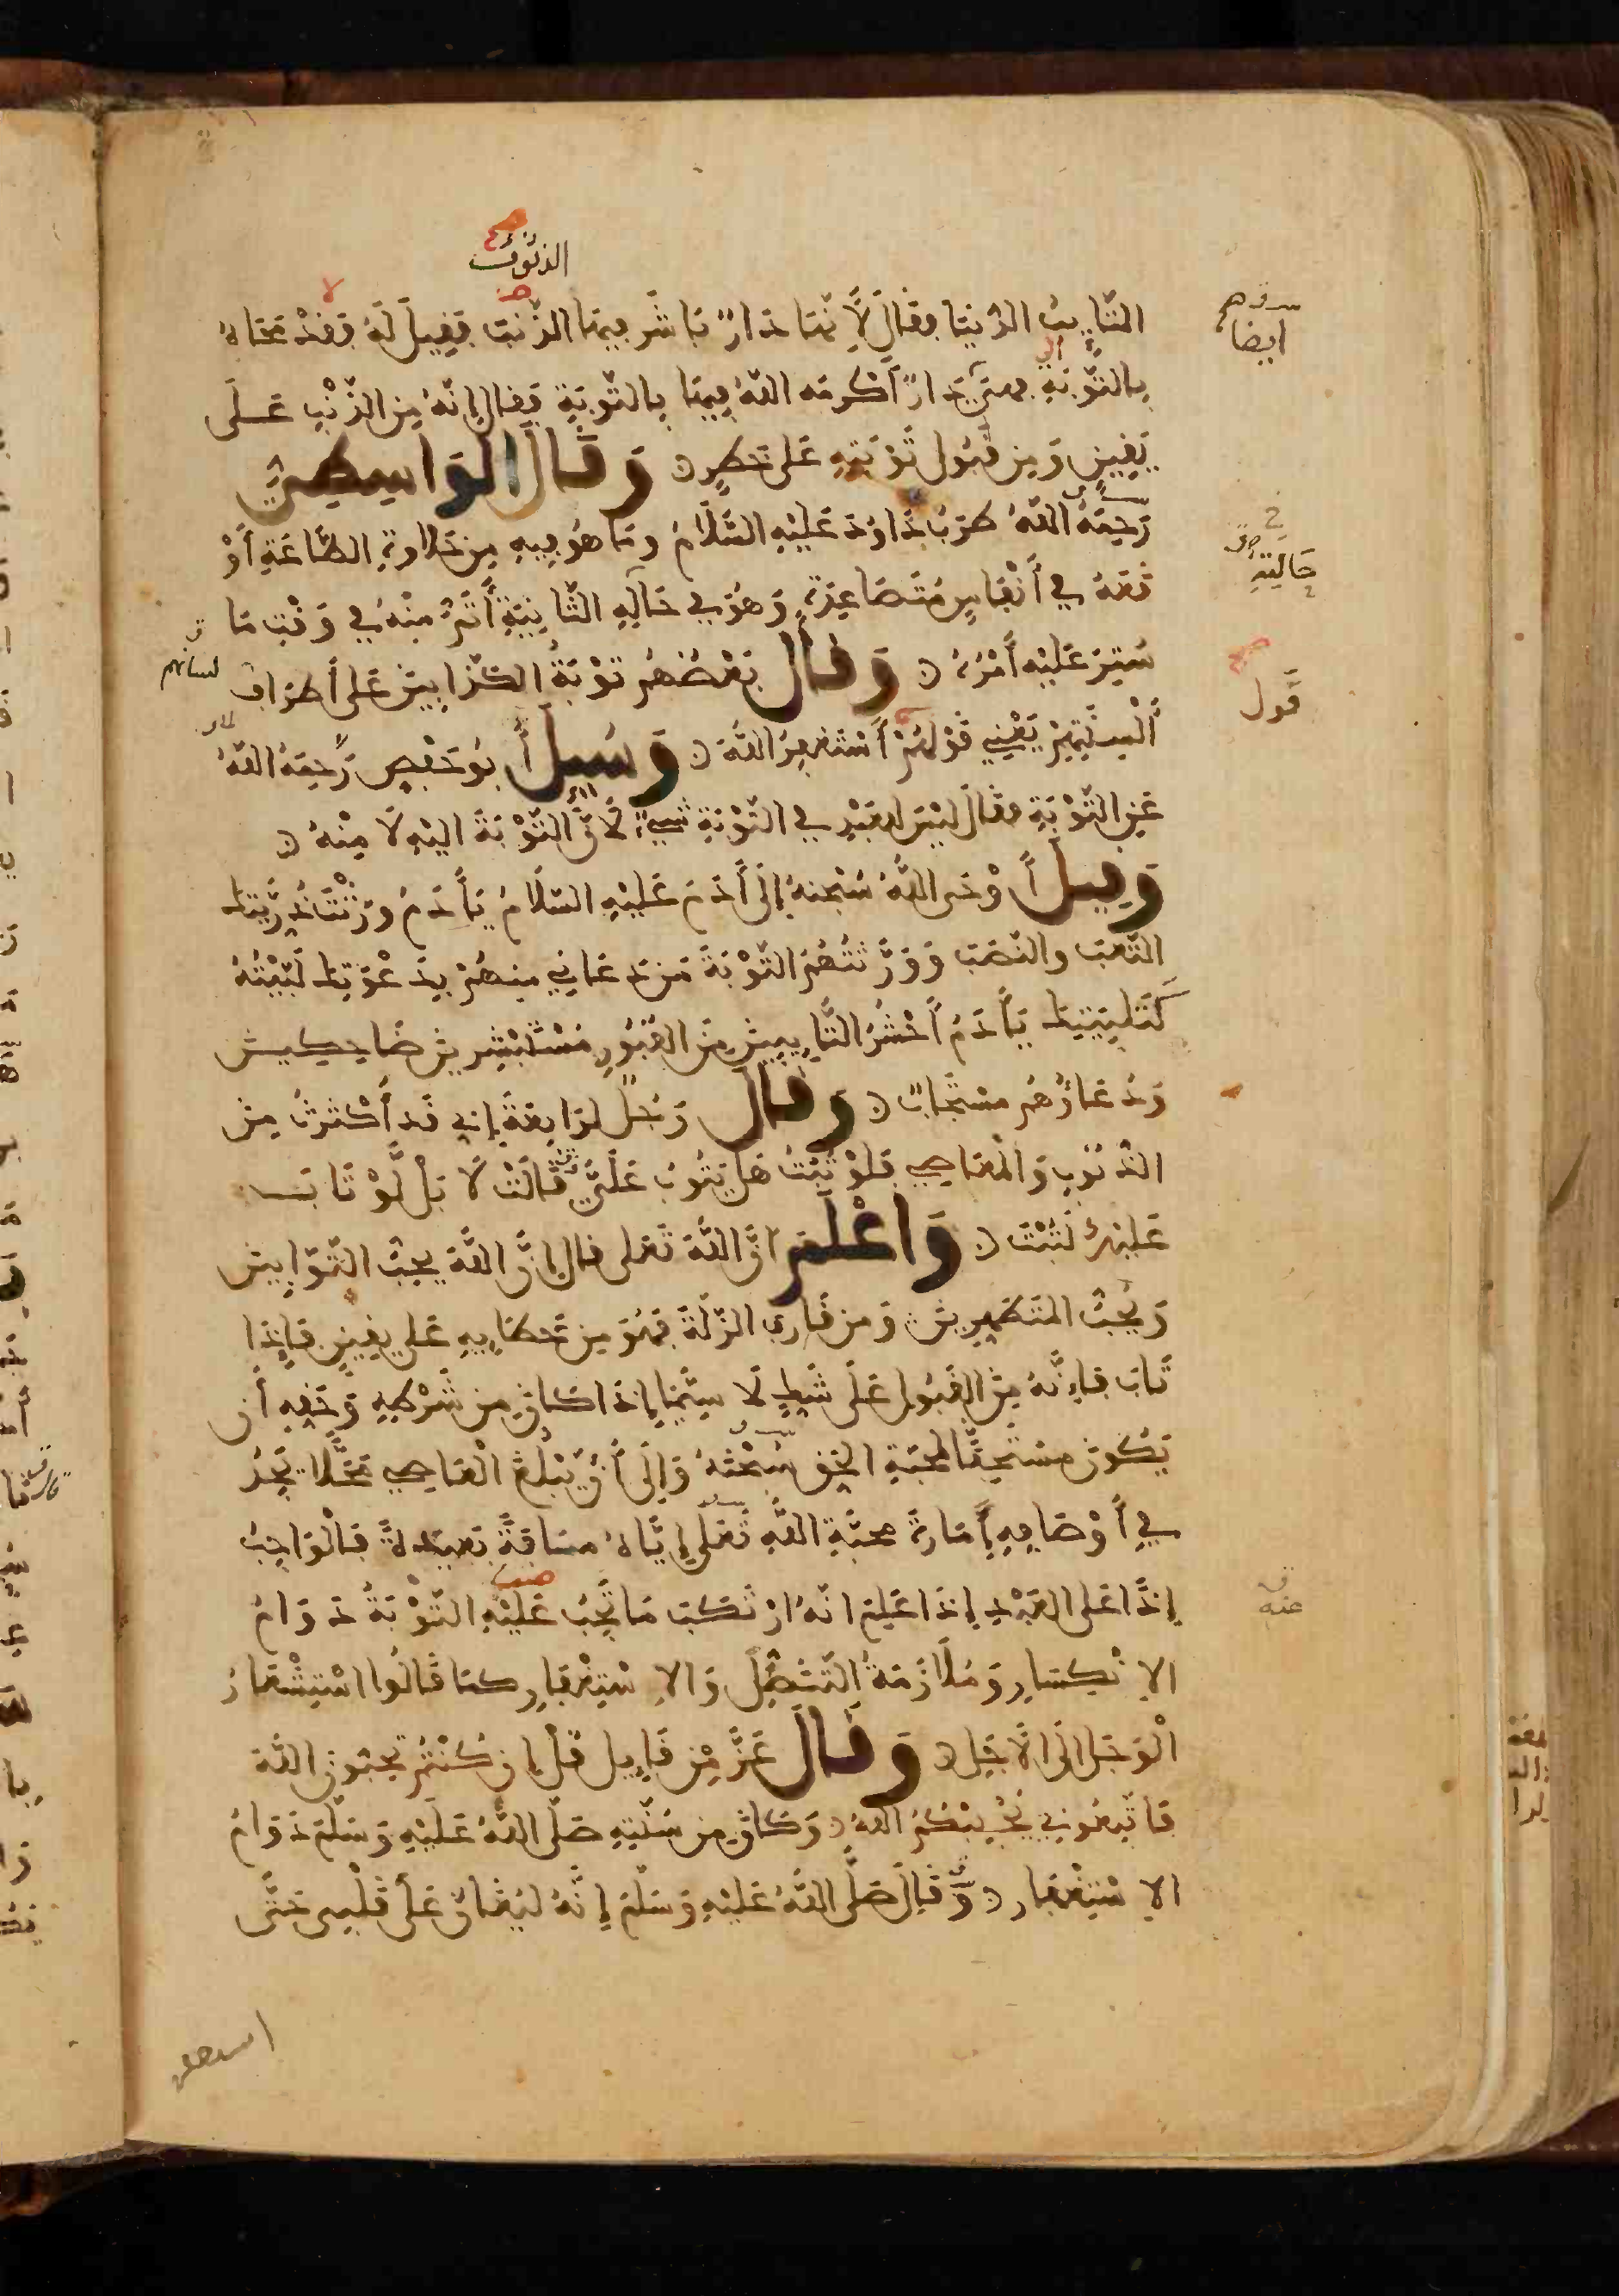 الذنوب
التَّايِبُ الدُّنْيَا فقَالَ لِأَنَّهَا دَارٌ بَاشَرَ فِيهَا الذَّنبَ فَقِيلَ لَهُ فَفَدْ
أيضا
بِالتَّوْبَةِ دَارٌ أَكْرَمَهُ اللهُ فِيهَا بِالتَّوْبَةِ فَقَالَ إِنَّهُ مِنَ الذَّنْبِ عَلَى
يَقِينٍ وَمِنْ قَبُولِ تَوْبَتِهِ عَلَى خَطَرٍ وَقَالَ الْوَاسِطِيُّ
رَحِمَهُ اللهُ طَرَبُ دَاوُدَ عَلَيْهِ السَّلَامُ وَمَا هُوَ فِيهِ مِنْ حَلَاوَةِ الطَّاعَةِ أَوْ
حَالَتِهِ
قَعَهُ فِي أَنْفَاسٍ مُتَصَاعِدَةٍ وَهُوَ فِي حَالِهِ الثَّانِيَةِ أَتَمُّ مِنْهُ فِي وَقْتِ مَا
سُتِرَ عَلَيْهِ أَمْرُهُ وَقَالَ بَعْضُهُمْ تَوْبَةُ الكَذَّابِينَ عَلَى أَطْرَافِ
لسانهم
قول
أَلْسِنَتِهِمْ يَعْنِي قَوْلَهُمْ أَسْتَغْفِرُ اللهَ وَسُيِلَ أَبُو حَفْصٍ رَحِمَهُ اللهُ
عَنِ التَّوْبَةِ فقَالَ لَيْسَ لِلعَبْدِ فِي التَّوْبَةِ شَيْءٌ لِأَنَّ التَّوْبَةَ إِلَيْهِ لَا مِنْهُ
وَقِيلَ أَوْحَى اللهُ سُبْحَنَهُ إِلَى آدَمَ عَلَيْهِ السَّلَامُ يَا آدَمُ وَرَّثْتَ ذُرِّيَّتَكَ
التَّعَبَ وَالنَّصَبَ وَوَرَّثْتُهُمُ التَّوْبَةَ مَنْ دَعَانِي مِنْهُمْ بِدَعْوَتِكَ لَبَّيْتُهُ
كَتَلْبِيَتِكَ يَا آدَمُ أَحْشُرُ التَّايِبِينَ مِنَ القُبُورِ مُسْتَبْشِرِينَ ضَاحِكِينَ
وَدُعَاؤُهُمْ مُسْتَجَابٌ وَقَالَ رَجُلٌ لِرَابِعَةَ إِنِّي قَدْ أَكْثَرْتُ مِنَ
الذُّنُوبِ وَالْمَعَاصِي فَلَوْ تُبْتُ هَلْ يَتُوبُ عَلَيَّ فَقَالَتْ لَا بَلْ لَوْ تَابَ
عَلَيْكَ لَتُبْتَ وَاعْلَمْ أَنَّ اللهَ تَعَلَى قَالَ إِنَّ اللهَ يُحِبُّ التَّوَّابِينَ
وَيُحِبُّ المُتَطَهِّرِينَ وَمَنْ قَارَفَ الزَّلَّةَ فَهُوَ مِنْ خَطَايِهِ عَلَى يَقِينٍ فَإِذَا
تَابَ فَإِنَّهُ مِنَ القَبُولِ عَلَى شَكٍّ لَا سِيَّمَا إِذَا كَانَ مِنْ شَرْطِهِ وَحَقِّهِ أَنْ
يَكُونَ مُسْتَحِقًّا لِمَحَبَّةِ الحَقِّ سُبْحَنَهُ وَإِلَى أَنْ يَبْلُغَ الْعَاصِي مَحَلًّا يَجِدُ
فِي أَوْصَافِهِ أَمَارَةَ مَحَبَّةِ اللهِ تَعَلَى إِيَّاهُ مَسَافَةٌ بَعِيدَةٌ فَالْوَاجِبُ
إِذًا عَلَى العَبْدِ إِذَا عَلِمَ أَنَّهُ ارْتَكَبَ مَا يَجِبُ عَلَيْهِ التَّوْبَةُ دَوَامُ
عنه
الِانْكِسَارِ وَمُلَازَمَةُ التَّنَصُّلِ وَالِاسْتِغْفَارِ كَمَا قَالُوا اسْتِشْعَارُ
الْوَجَلِ إِلَى الأَجَلِ وَقَالَ عَزَّ مِنْ قَايِلٍ قُلْ إِنْ كُنْتُمْ تُحِبُّونَ اللهَ
فَاتَّبِعُونِي يُحْبِبْكُمُ اللهُ وَكَانَ مِنْ سُنَّتِهِ صَلَّى اللهُ عَلَيْهِ وَسَلَّمَ دَوَامُ
الِاسْتِغْفَارِ وَقَالَ صَلَّى اللهُ عَلَيْهِ وَسَلَّمَ إِنَّهُ لَيُغَانُ عَلَى قَلْبِي حَتَّى